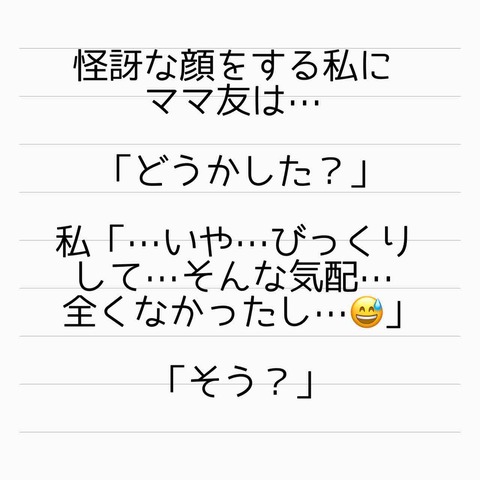 怪訝な顔をする私に
ママ友は…
「どうかした？」
私「…いや…びっくり
して…そんな気配…
全くなかったし…😅」
「そう？」